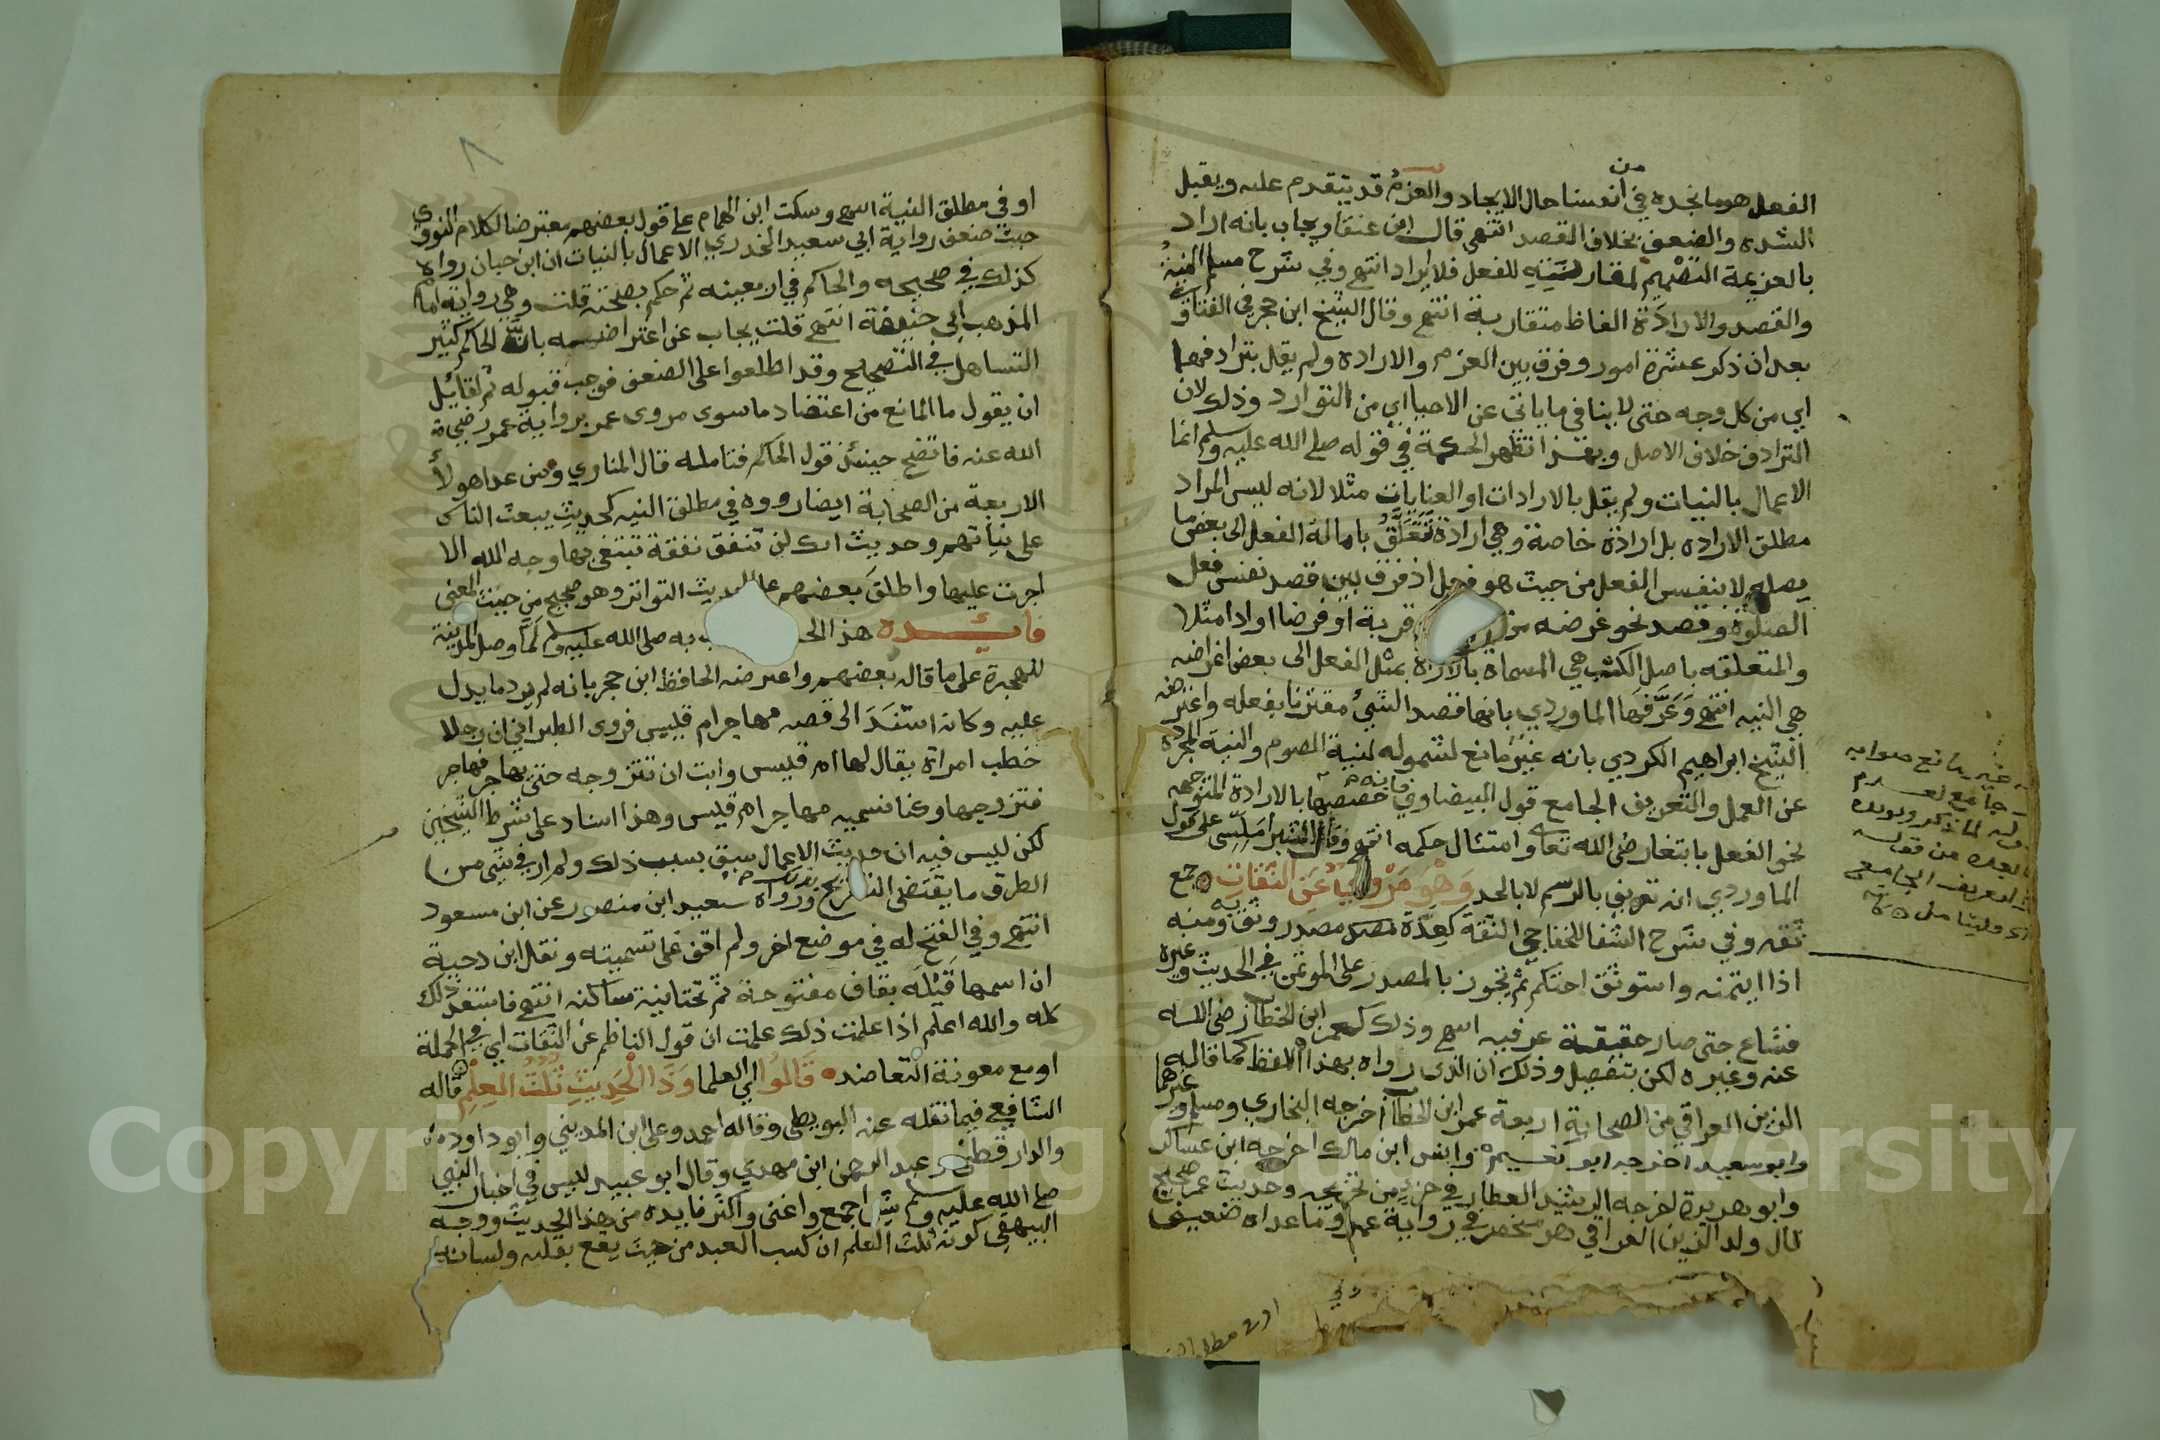 من
الفعل هو ما نجده في أنفسنا حال الايجاد والعزم قد يتقدم عليه ويقبل
الشده والضعف بخلاف القصد انتهى قال ابن عنقا ويجاب بانه اراد
بالعزيمة التصميم لمقارنته للفعل فلا ايراد انتهى وفي شرح مسلم النية
والقصد والارادة الفاظ متقاربة انتهى وقال الشيخ ابن حجر في الفتاوى
بعد ان ذكر عشرة امور وفرق بين العزم والاراده ولم يقل بترادفهما
اي من كل وجه حتى لا ينافي ما ياتي عن الاحيا اي من التوارد وذلك لان
الترادف خلاف الاصل وبهذا تظهر الحكمة في قوله صلى الله عليه وسلم انما
الاعمال بالنيات ولم يقل بالارادات او العنايات مثلا لانه ليس المراد
مطلق الاراده بل ارادة خاصة وهي ارادة تتعلق بامالة الفعل الى بعض ما
يصله لا بنفس الفعل من حيث هو فعل اذ فرق بين قصد نفس فعل
الصلوة وقصد نحو غرضه من قربة او فرضا او ادا مثلا
والمتعلقه باصل الكسب هي المسماة بالارادة بمثل الفعل الى بعض اغراضه
هي النيه انتهى وعرفها الماوردي بانها قصد الشيء مقترنا بفعله واعترضه
الشيخ ابراهيم الكردي بانه غير مانع لشموله لنية الصوم والنية المجردة
عن العمل والتعريف الجامع قول البيضاوي فانه خصصها بالارادة المتوجهه
نحو الفعل بابتغا رضى الله تعالى وامتثال حكمه انتهى وقال الشبراملسي على قول
الماوردي انه تعريف بالرسم لا بالحد وهو مروي عن الثقات جمع
ثقه وفي شرح الشفا للخفاجي الثقة كعدة مصدر وثق به ومنه
اذا ايتمنه واستوثق احتكم ثم تجوز بالمصدر على الموتمن في الحديث وغيره
فشاع حتى صار حقيقة عرفيه اسهى وذلك كعمر ابن الخطاب رضي الله
عنه وغيره لكن بتفصيل وذلك ان الذي رواه بهذا اللفظ كما قاله
الزين العراقي من الصحابة اربعة عمر ابن الخطاب اخرجه البخاري ومسلم وغيرهما
وابو سعيد اخرجه ابو نعيم وانس ابن مالك اخرجه ابن عساكر
وابو هريرة اخرجه الرشيد العطار في جزء من تخريجه وحديث عمر صحيح
قال ولد الزين العراقي هو منحصر في رواية عمر وما عداه ضعيف
غير مانع صوابه
جامع لعدم
لما ذكر ويويده
بعده من قوله
والتعريف الجامع
فليتامل
او في مطلق
٨
او في مطلق النية اسهى وسكت ابن الهمام على قول بعضهم معترضا لكلام النووي
حيث ضعف رواية ابي سعيد الخدري الاعمال بالنيات ان ابن حبان رواه
كذلك في صحيحه والحاكم في اربعينه ثم حكم بصحته قلت وهي رواية امام
المذهب ابي حنيفة انتهى قلت يجاب عن اعتراضه بان الحاكم كثير
التساهل في التصحيح وقد اطلعوا على الضعف فوجب قبوله ثم لقايل
ان يقول ما المانع من اعتضاد ما سوى مروى عمر برواية عمر رضي
الله عنه فاتضح حينئذ قول الحاكم فتامله قال المناوي ومن عدا هولا
الاربعة من الصحابة ايضا رووه في مطلق النيه كحديث يبعث الناس
على نياتهم وحديث انك لن تنفق نفقة تبتغي بها وجه الله الا
اجرت عليها واطلق بعضهم على الحديث التواتر وهو صحيح من حيث المعنى
فايده هذا به صلى الله عليه وسلم لما وصل المدينة
للهجرة على ما قاله بعضهم واعترضه الحافظ ابن حجر بانه لم يرد ما يدل
عليه وكانه استند الى قصه مهاجر ام قيس فروى الطبراني ان رجلا
خطب امراة يقال لها ام قيس وابت ان تتزوجه حتى يهاجر فهاجر
فتزوجها وكنا نسميه مهاجر ام قيس وهذا اسناد على شرط الشيخين
لكن ليس فيه ان حديث الاعمال سبق بسبب ذلك ولم ار في شي من
الطرق ما يقتضي التصريح بذلك ورواه سعيد ابن منصور عن ابن مسعود
انتهى وفي الفتح له في موضع اخر ولم اقف على تسميته ونقل ابن دحية
ان اسمها قيلة بقاف مفتوحة ثم تحتانية ساكنه انتهى فاستفد ذلك
كله والله اعلم اذا علمت ذلك علمت ان قول الناظم عن الثقات اي في الجملة
او مع معونة التعاضد قالوا اي العلما وذا الحديث ثلث العلم قاله
الشافعي فيما نقله عنه البويطي وقاله احمد وعلى ابن المديني وابو داود
والدارقطني وعبد الرحمن ابن مهدي وقال ابو عبيد ليس في اخبار النبي
صلى الله عليه وسلم شي اجمع واغنى واكثر فايده من هذا الحديث ووجه
البيهقي كونه ثلث العلم ان كسب العبد من حيث يقع بقلبه ولسانه
Copyright © King Saud University